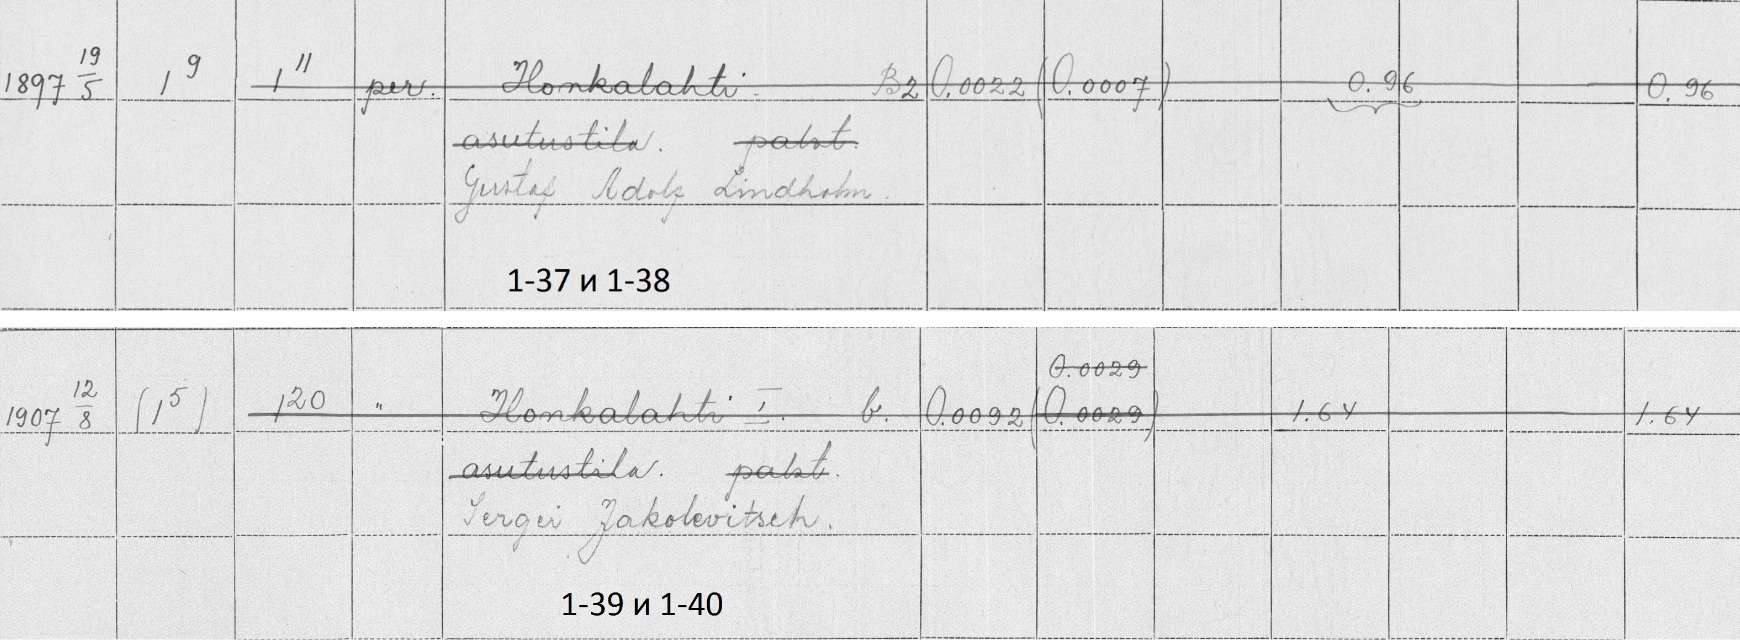 1897 19/5 1⁹ 1¹¹ per. Honkalahti. B2 0.0022 (0.0007) 0.96 0.96
asutustila. palst.
Gustaf Adolf Lindholm.
1-37 и 1-38
0.0029
1907 12/8 (1⁵) 1²⁰ " Honkalahti I. b. 0.0092 (0.0029) 1.64 1.64
asutustila. palst.
Sergei Jakolevitsch.
1-39 и 1-40